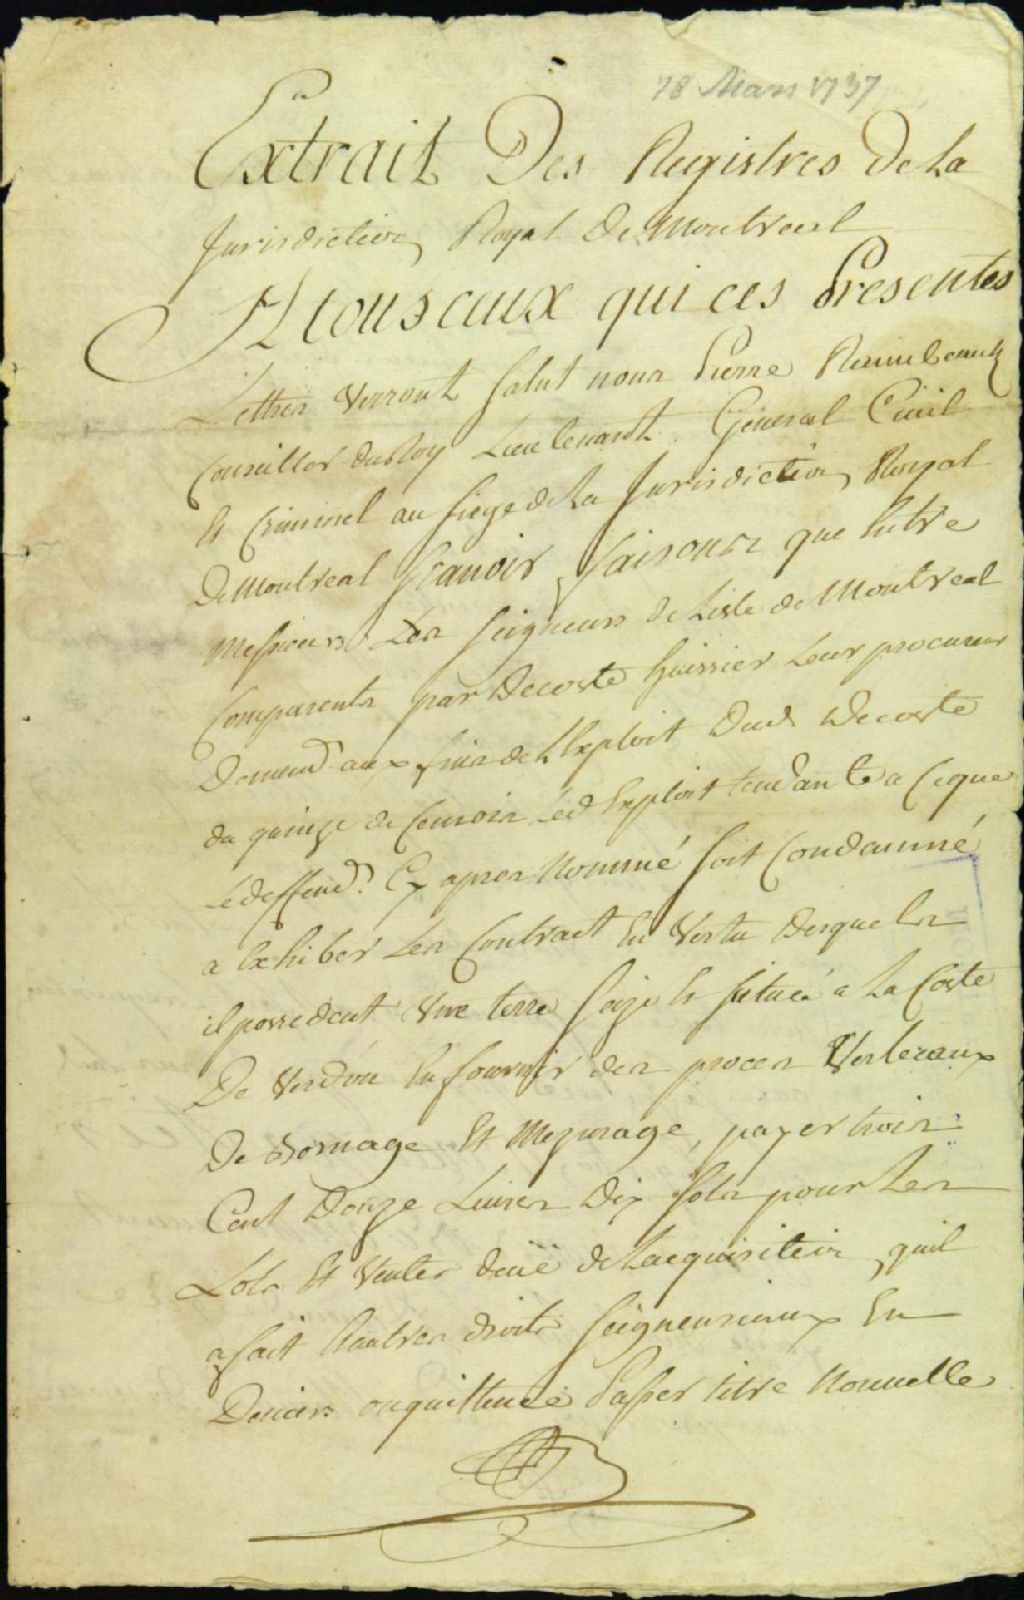 18 Mars 1737
Extrait Des Registres De La
Jurisdiction Royal De Montreal
A tous ceux qui ces Presentes
Lettres Verront Salut nous Pierre Raimbeault
Conseiller du Roy Lieutenant General Civil
Et Criminel au siege de La Jurisdiction Royal
De Montreal Scavoir faisons que Entre
Messieurs Les Seigneurs de Lisle de Montreal
Comparents par Decoste huissier Leur procureur
Demendrs aux fins de LExploit Dud Decoste
du quinze de Ce mois Led Exploit tendante a Ceque
Le deffendr Cy apres Nommé soit Condamné
a Exhiber Les Contract En Vertu Desquels
il possedent Une terre size Et située a La Coste
De Verdun En fournir des proces Verbeaux
De Bornage Et Mezurage, payer trois
Cent Douze Livres Dix sols pour Les
Lots Et Ventes deüe de Lacquisition quil
a fait Et autres droits Seigneuriaux En
Deniers ou quittence Passer titre Nouvelle